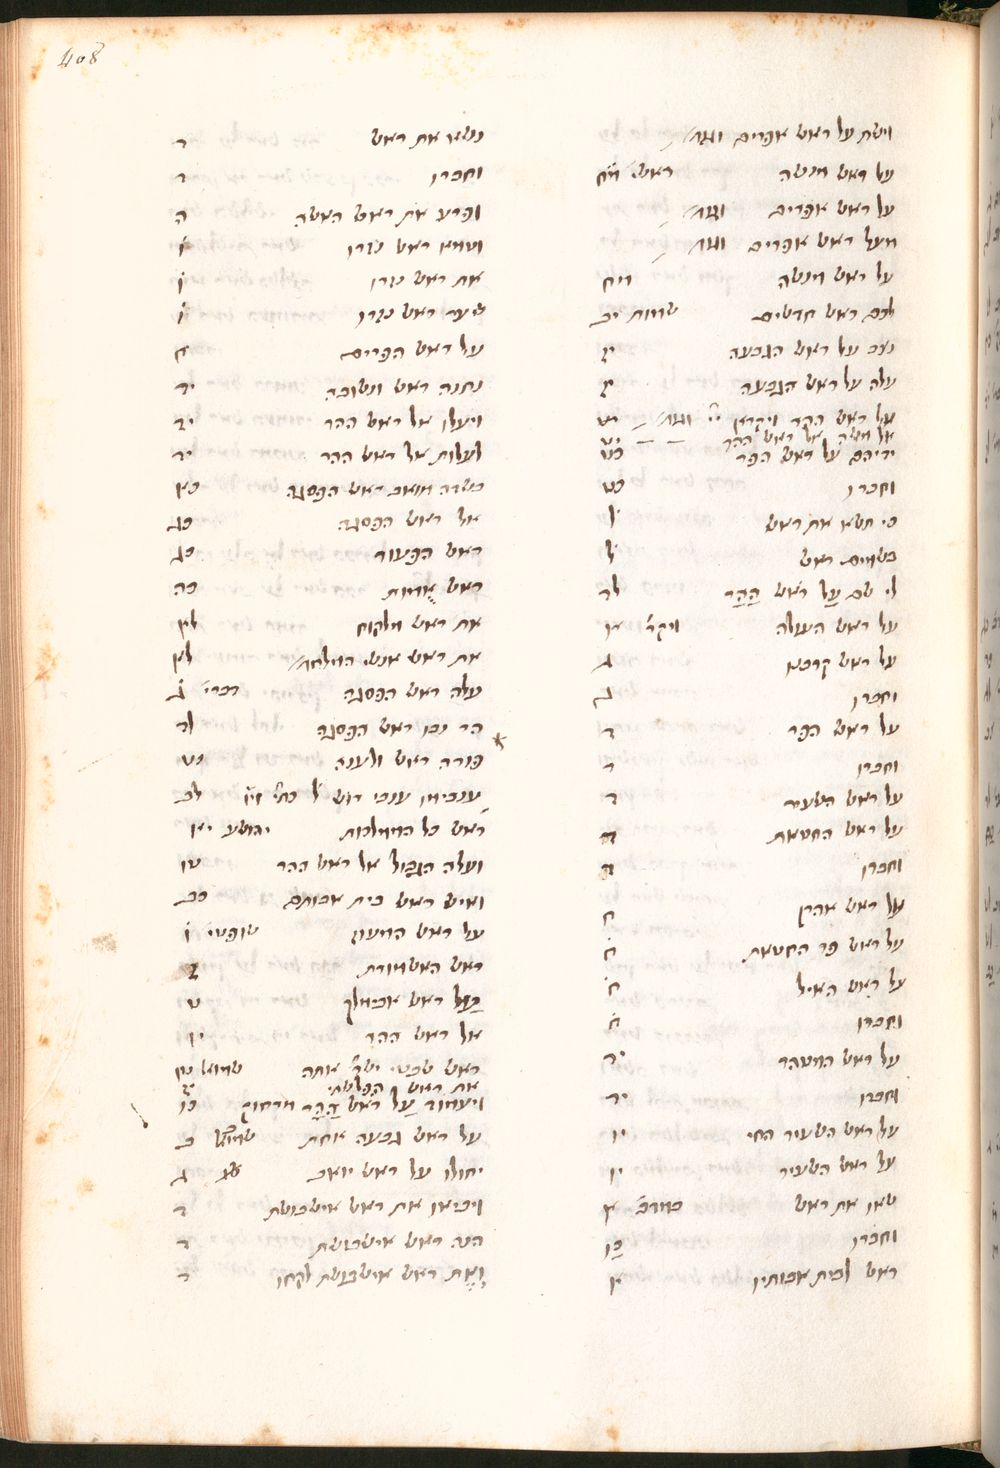 408
וישת על ראש אפרים וגו׳
על ראש מנשה ראש׳ מח
על ראש אפרים וגו׳
מעל ראש אפרים וגו׳
על ראש מנשה מח
לכם ראש חדשים שמות יב
נצב על ראש הגבעה יז
עלה על ראש הגבעה יז
על ראש ההר ויקרא יי׳ וגו׳ יט
אל משה אל ראש ההר יט
ידיהם על ראש הפר כט
וחברו כט
כי תשא את ראש ל
בשמים ראש ל
לי שם על ראש ההר לד
על ראש העולה ויקר׳ א
על ראש קרבנו ג
וחברו ג
על ראש הפר ד
וחברו ד
על ראש השעיר ד
על ראש החטאת ד
וחברו ד
על ראש אהרן ח
על ראש פר החטאת ח
על ראש האיל ח
וחברו ח
על ראש המטהר יד
וחברו יד
על ראש השעיר החי יו
על ראש השעיר יו
שאו את ראש במדב׳ א
וחברו כו
ראש לבית אבותיו א
נשא את ראש ד
וחברו ד
ופרע את ראש האשה ה
וטמא ראש נזרו ו
את ראש נזרו ו
שער ראש נזרו ו
על ראש הפרים ח
נתנה ראש ונשובה יד
ויעלו אל ראש ההר יד
לעלות אל ראש ההר יד
בשדה מואב ראש הפסגה כא
אל ראש הפסגה כג
ראש הפעור כג
ראש אמות כה
את ראש מלקוח לא
את ראש אנשי המלחמ׳ לא
עלה ראש הפסגה דברי׳ ג
הר נבו ראש הפסגה לד
פורה ראש ולענה כט
ענבימו ענבי רוש ל כתי׳ וי׳ו לב
ראש כל הממלכות יהושע יא
ועלה הגבול אל ראש ההר טו
ואיש ראש בית אבותם כב
על ראש המעוז שופטי׳ ו
ראש האשמורת ז
על ראש אבימלך ט
אל ראש ההר יו
ראש שבטי ישר׳ אתה שמואל טו
את ראש הפלשתי יז
ויעמוד על ראש ההר מרחוק כו
על ראש גבעה אחת שמואל ב
יחולו על ראש יואב ג
ויביאו את ראש אישבושת ד
הנה ראש אישבושת ד
ואת ראש אישבושת לקחו ד